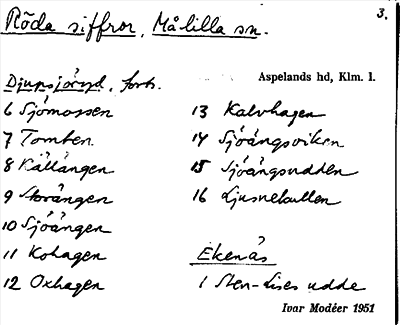 3.
Röda siffror, Målilla sn.
Aspelands hd, Klm. l.
Djupsjöryd, forts.
6 Sjömossen
7 Tomten
8 Källängen
9 Storängen
10 Sjöängen
11 Kohagen
12 Oxhagen
13 Kalvhagen
14 Sjöängsviken
15 Sjöängsudden
16 Ljusnekullen
Ekenäs
1 Sten-Lises udde
Ivar Modéer 1951